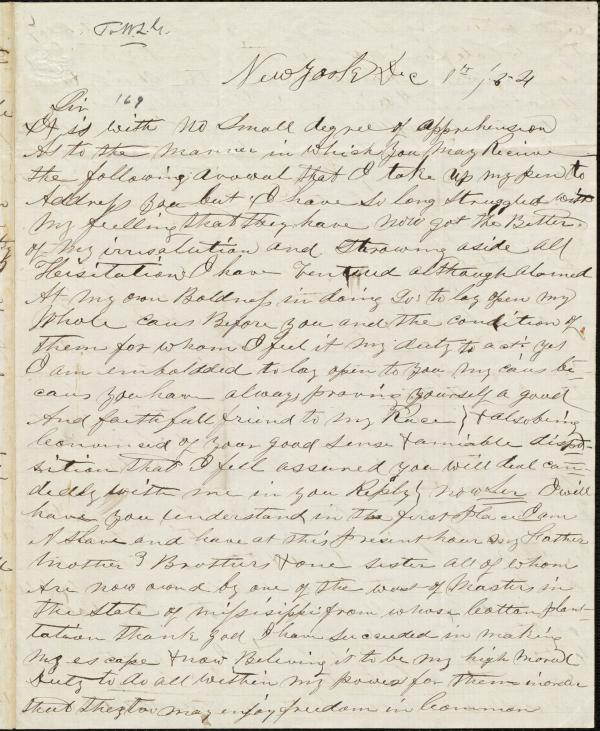 To W.L.G.
New York Dec 1st /54
Sir 169
It is with no small degree of apprehension
As to the manner in which you may Recive
the following avowal that I take up my pen to
Address you but I have so long struggled with
my feelling that they have now got the Better
of my irrisolution and throwing aside all
Hesitation I have Ventured although alarmed
At my own Boldness in doing So to lay open my
Whole caus Before you and the condition of
them for whom I feel it my duty to act yes
I am emboldded to lay open to you my caus be-
caus you have always proving yourself a good
And faithfull friend to my Race & also being
Convinced of your good sense & amiable dispo-
sition that I fell assured you will deal can-
dedly with me in you Reply now Sir I will
have you understand in the first place I am
A Slave and have at this present hour my Father
Mother 3 Brothers & one sister all of whom
Are now ownd by one of the worst of Masters in
the State of missisippi from whose Cotton plan-
tation thank god I have succeeded in making
my escape & now Believing it to be my high moral
Duty to do all within my power for them inorder
that they too may enjoy freedom in Common